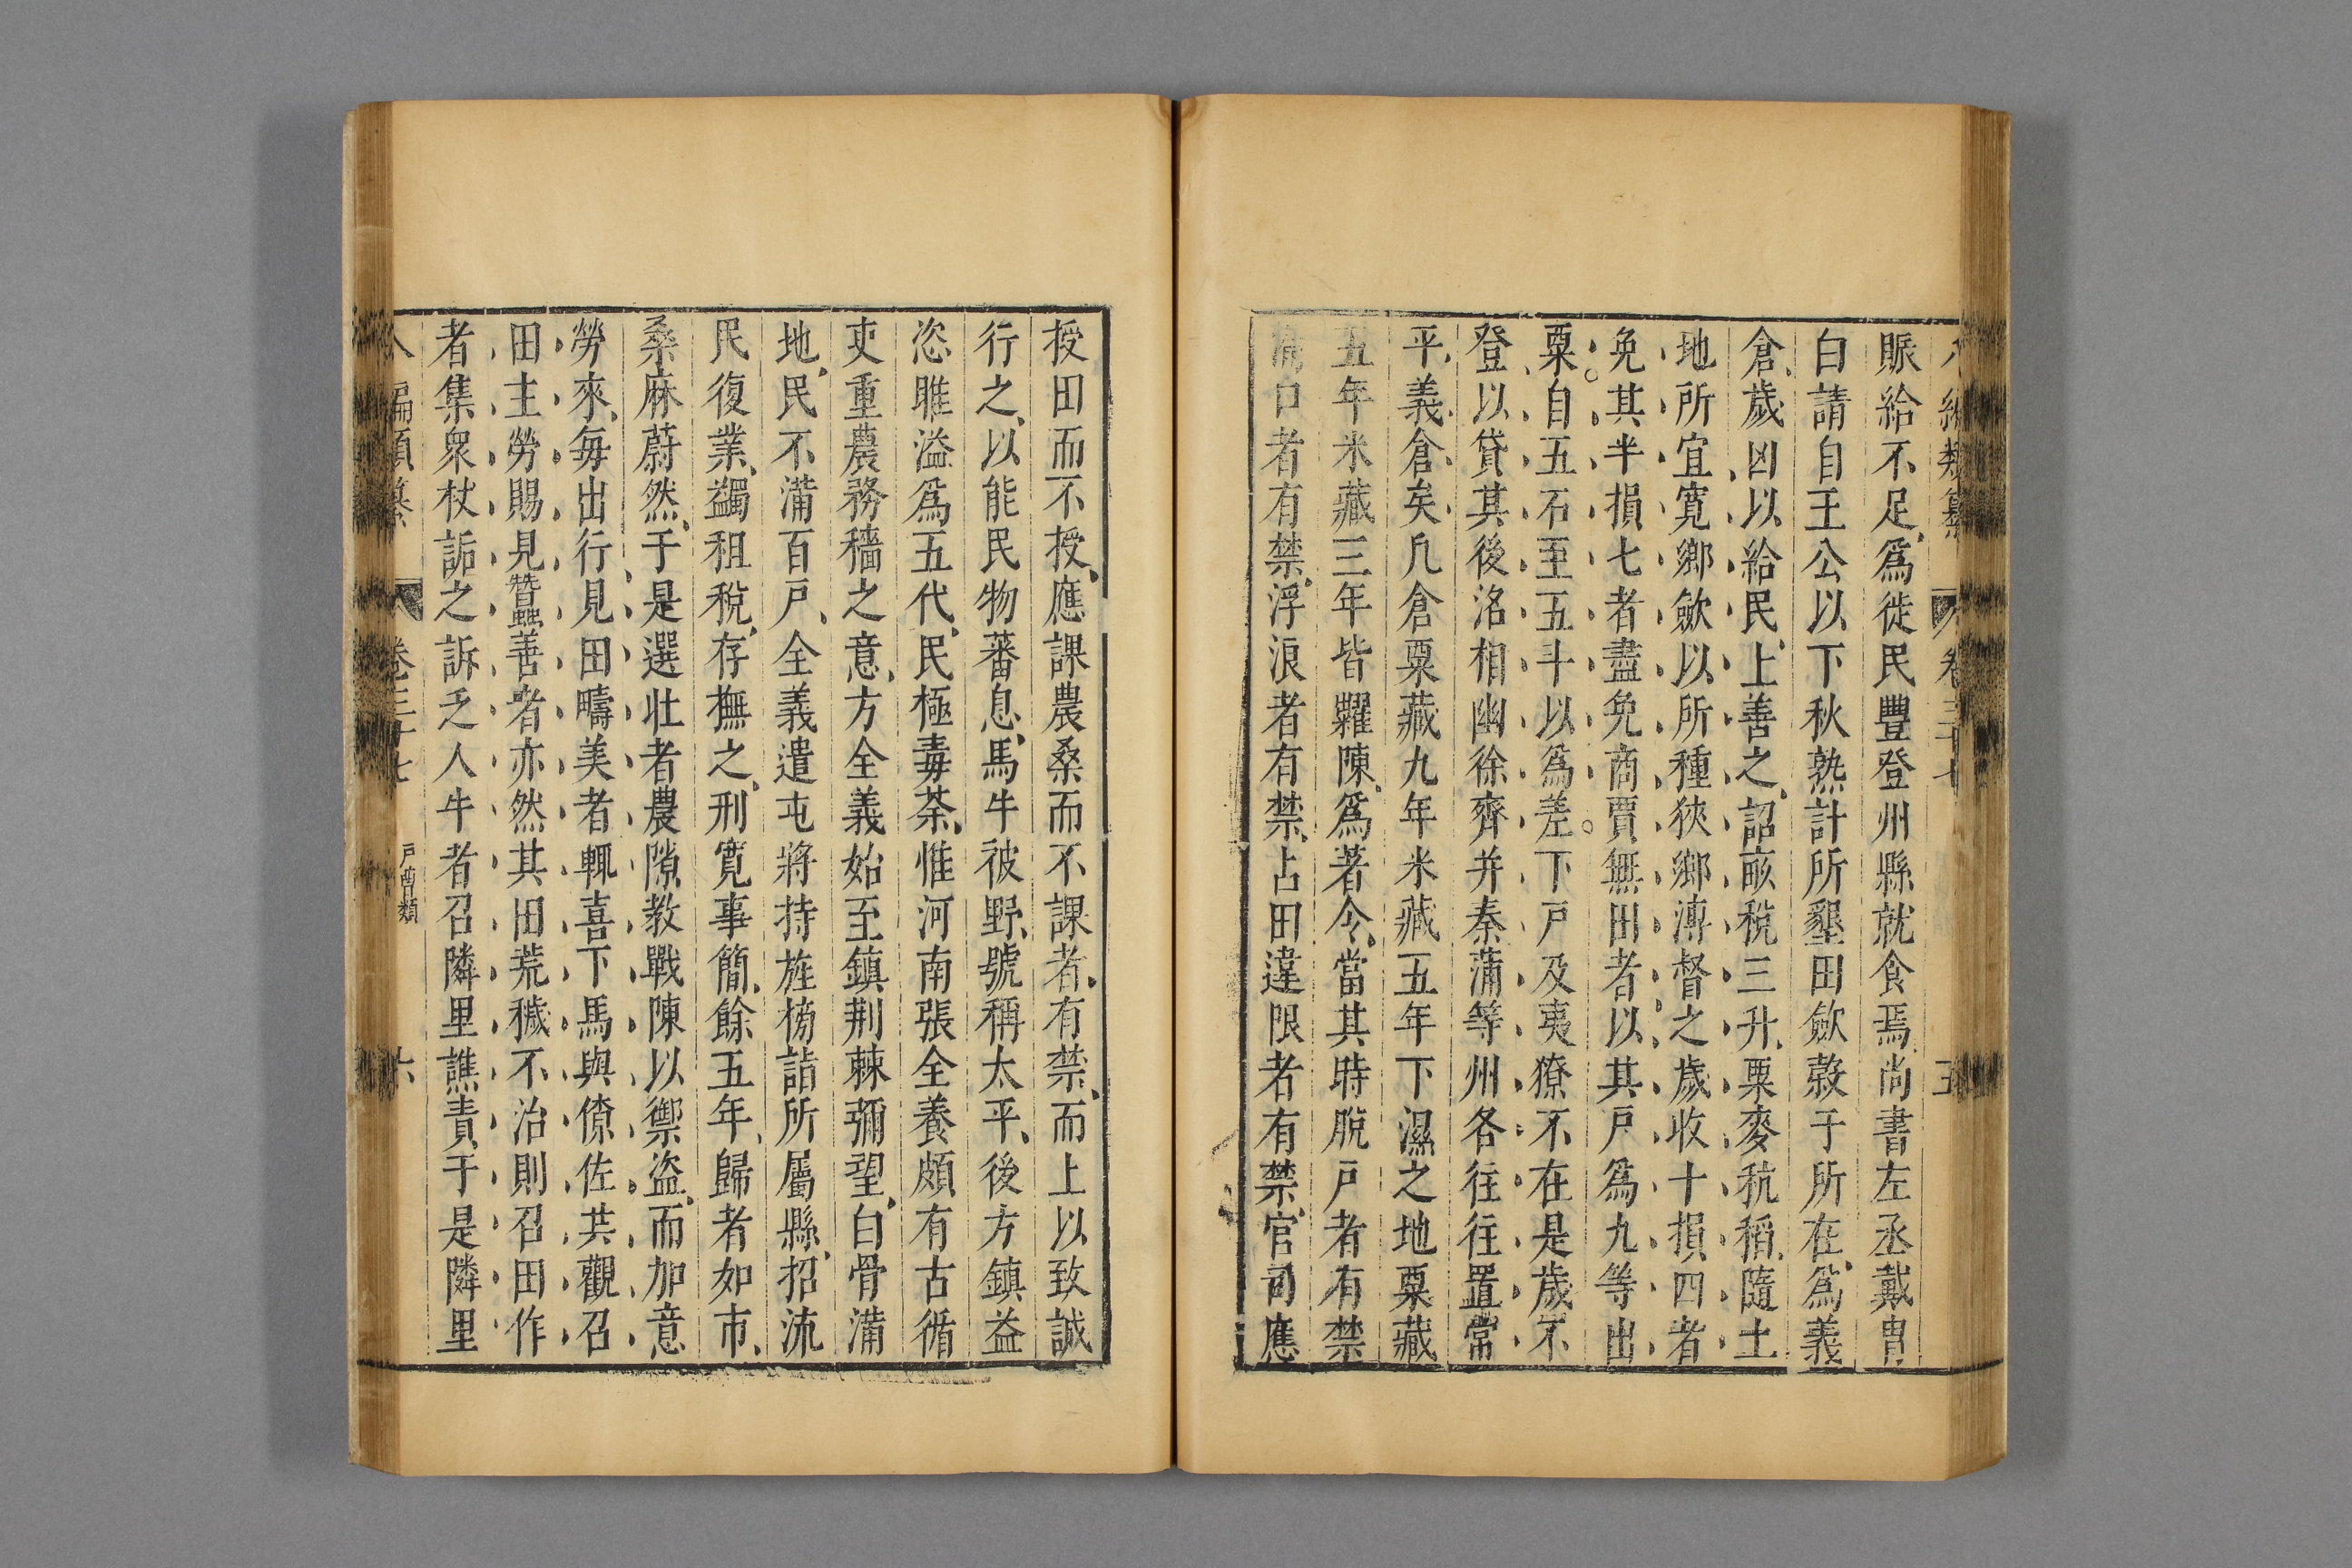 八編類纂 卷三十七 五
賑給不足爲徙民豐登州縣就食焉尚書左丞戴冑
白請自王公以下秋熟計所墾田歛穀于所在爲義
倉歲凶以給民上善之詔畝稅三升粟麥秔稻隨土
地所宜寬鄉歛以所種狹鄉溥督之歲收十損四者
免其半損七者盡免商賈無田者以其戸爲九等出
粟自五石至五斗以爲差下戸及夷獠不在是歲不
登以貸其後洛相幽徐齊并秦蒲等州各往往置常
平義倉矣凡倉粟藏九年米藏五年下濕之地粟藏
五年米藏三年皆糶陳爲著令當其時脫戸者有禁
漏口者有禁浮浪者有禁占田違限者有禁官司應
授田而不授應課農桑而不課者有禁而上以致誠
行之以能民物蕃息馬牛彼野號稱太平後方鎮益
恣睢溢爲五代民極毒荼惟河南張全養頗有古循
吏重農務穡之意方全義始至鎮荆棘彌望白骨滿
地民不滿百戸全義遣屯將持旌榜詣所屬縣招流
民復業蠲租稅存撫之刑寬事簡餘五年歸者如市
桑麻蔚然于是選壯者農隙教戰陳以禦盗而加意
勞來每出行見田疇美者輒喜下馬與僚佐共觀召
田主勞賜見蠶善者亦然其田荒穢不治則召田作
者集衆杖詬之訴乏人牛者召隣里譙責于是隣里
八編類纂 卷三十七 戸曹類 六